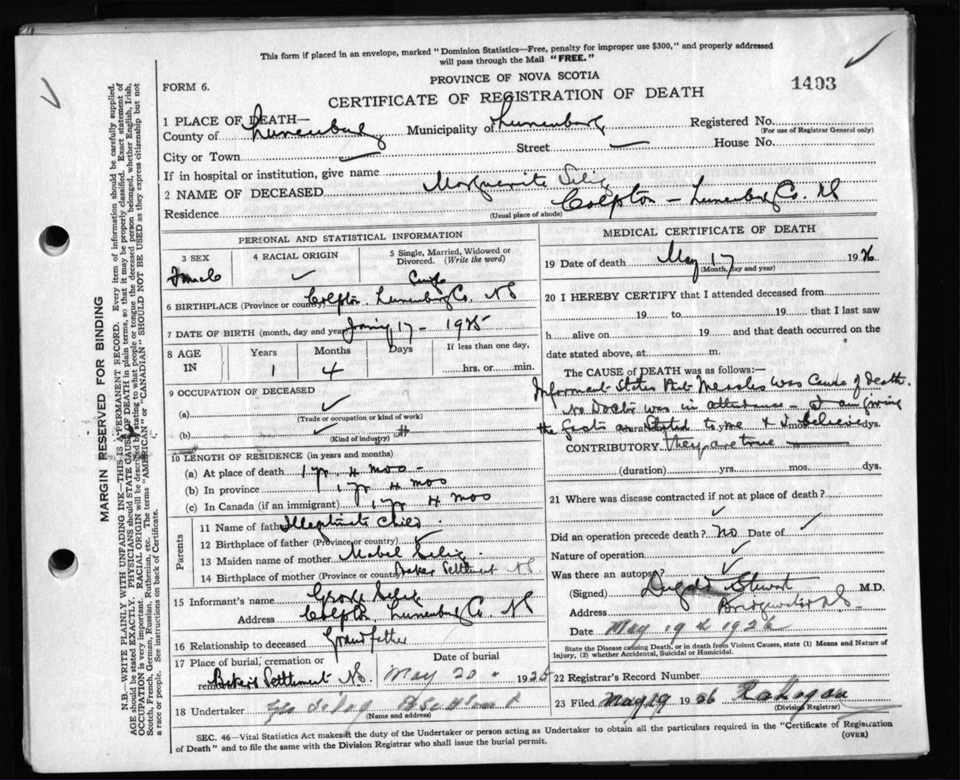 This form if placed in an envelope, marked "Dominion Statistics—Free, penalty for improper use $300," and properly addressed
will pass through the Mail "FREE."
PROVINCE OF NOVA SCOTIA
FORM 6.
1493
CERTIFICATE OF REGISTRATION OF DEATH
1 PLACE OF DEATH—
County of Lunenburg Municipality of Lunenburg Registered No.
(For use of Registrar General only)
City or Town Street House No.
If in hospital or institution, give name
2 NAME OF DECEASED Marguerite Selig
Residence (Usual place of abode) Colpton — Lunenburg Co. NS
PERSONAL AND STATISTICAL INFORMATION
3 SEX 4 RACIAL ORIGIN 5 Single, Married, Widowed or Divorced. (Write the word)
Female ✓ Single
6 BIRTHPLACE (Province or country) Colpton. Lunenburg Co. NS
7 DATE OF BIRTH (month, day and year) 17 - 1925
8 AGE IN Years Months Days If less than one day,
1 4 hrs. or min.
9 OCCUPATION OF DECEASED
(a) ✓
(Trade or occupation or kind of work)
(b) ✓
(Kind of industry)
10 LENGTH OF RESIDENCE (in years and months)
(a) At place of death 1 yr. 4 mos -
(b) In province 1 yr 4 mos
(c) In Canada (if an immigrant) 1 yr 4 mos
Parents
11 Name of father Illegitimate Child.
12 Birthplace of father (Province or country) ✓
13 Maiden name of mother Mabel Selig.
14 Birthplace of mother (Province or country) Baker Settlement NS
15 Informant's name George Selig
Address Colpton, Lunenburg Co. NS
16 Relationship to deceased Grandfather
17 Place of burial, cremation or Date of burial
Bakers Settlement NS. May 20 1926
18 Undertaker Geo Selig
(Name and address)
MEDICAL CERTIFICATE OF DEATH
19 Date of death May 17 1926
(Month, day and year)
20 I HEREBY CERTIFY that I attended deceased from
19 to 19 that I last saw
h alive on 19 and that death occurred on the
date stated above, at m.
The CAUSE OF DEATH was as follows:—
Informant States that Measles was Cause of death.
No Doctor was in attendance - I am giving
the facts as Stated to me & I believe dys.
CONTRIBUTORY they are true
(duration) yrs. mos. dys.
21 Where was disease contracted if not at place of death?
✓
Did an operation precede death? No Date of ✓
Nature of operation ✓
Was there an autopsy?
(Signed) Dugald Stewart M.D.
Address Bridgewater NS
Date May 19th 1926
State the Disease causing Death, or in death from Violent Causes, state (1) Means and Nature of
Injury, (2) whether Accidental, Suicidal or Homicidal.
22 Registrar's Record Number
23 Filed May 19 1926
(Division Registrar)
SEC. 46—Vital Statistics Act makes it the duty of the Undertaker or person acting as Undertaker to obtain all the particulars required in the "Certificate of Registration
of Death" and to file the same with the Division Registrar who shall issue the burial permit.
(OVER)
MARGIN RESERVED FOR BINDING
N.B.—WRITE PLAINLY WITH UNFADING INK—THIS IS A PERMANENT RECORD. Every item of information should be carefully supplied.
AGE should be stated EXACTLY. PHYSICIANS should STATE CAUSE OF DEATH in plain terms, so that it may be properly classified. Exact statement of
OCCUPATION is very important. RACIAL ORIGIN will be described by stating to what people or tongue the deceased person belonged, whether English, Irish,
Scotch, French, German, Russian, Ruthenian, etc. The terms "AMERICAN" or "CANADIAN" SHOULD NOT BE USED as they express citizenship but not
a race or people. See instructions on back of Certificate.